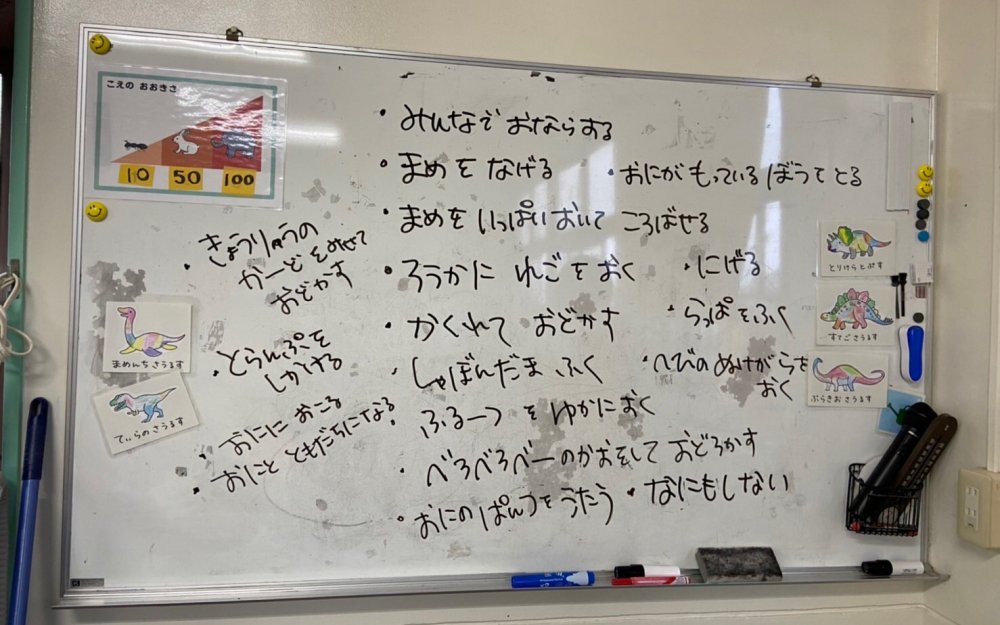 こえの おおきさ
10 50 100
・みんなで おならする
・まめを なげる
・おにが もっている ぼうを とる
・まめを いっぱい おいて ころばせる
・きょうりゅうの
かーどを みせて
おどかす
・ろうかに りんごを おく
・にげる
・かくれて おどかす
・らっぱを ふく
・とらんぷを
しかける
・しゃぼんだま ふく
・へびの ぬけがらを
おく
・おにに おこる
・ふるーつを ゆかに おく
・おにと ともだちになる
・べろべろべーの かおをして おどろかす
・おにの ぱんつを うたう
・なにもしない
まめんちさうるす
てぃらのさうるす
とりけらとぷす
すてごさうるす
ぶらきおさうるす